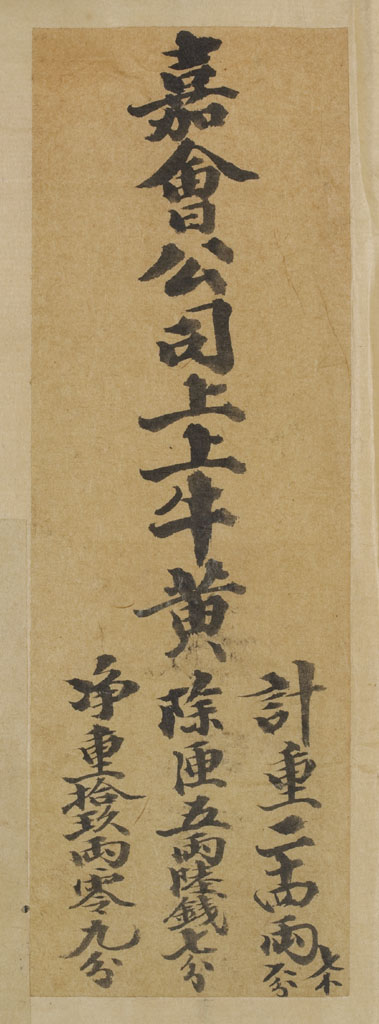 嘉會公司上上牛黃
計重二十四兩七錢六分
除匣五兩陸錢七分
净重拾玖兩零九分